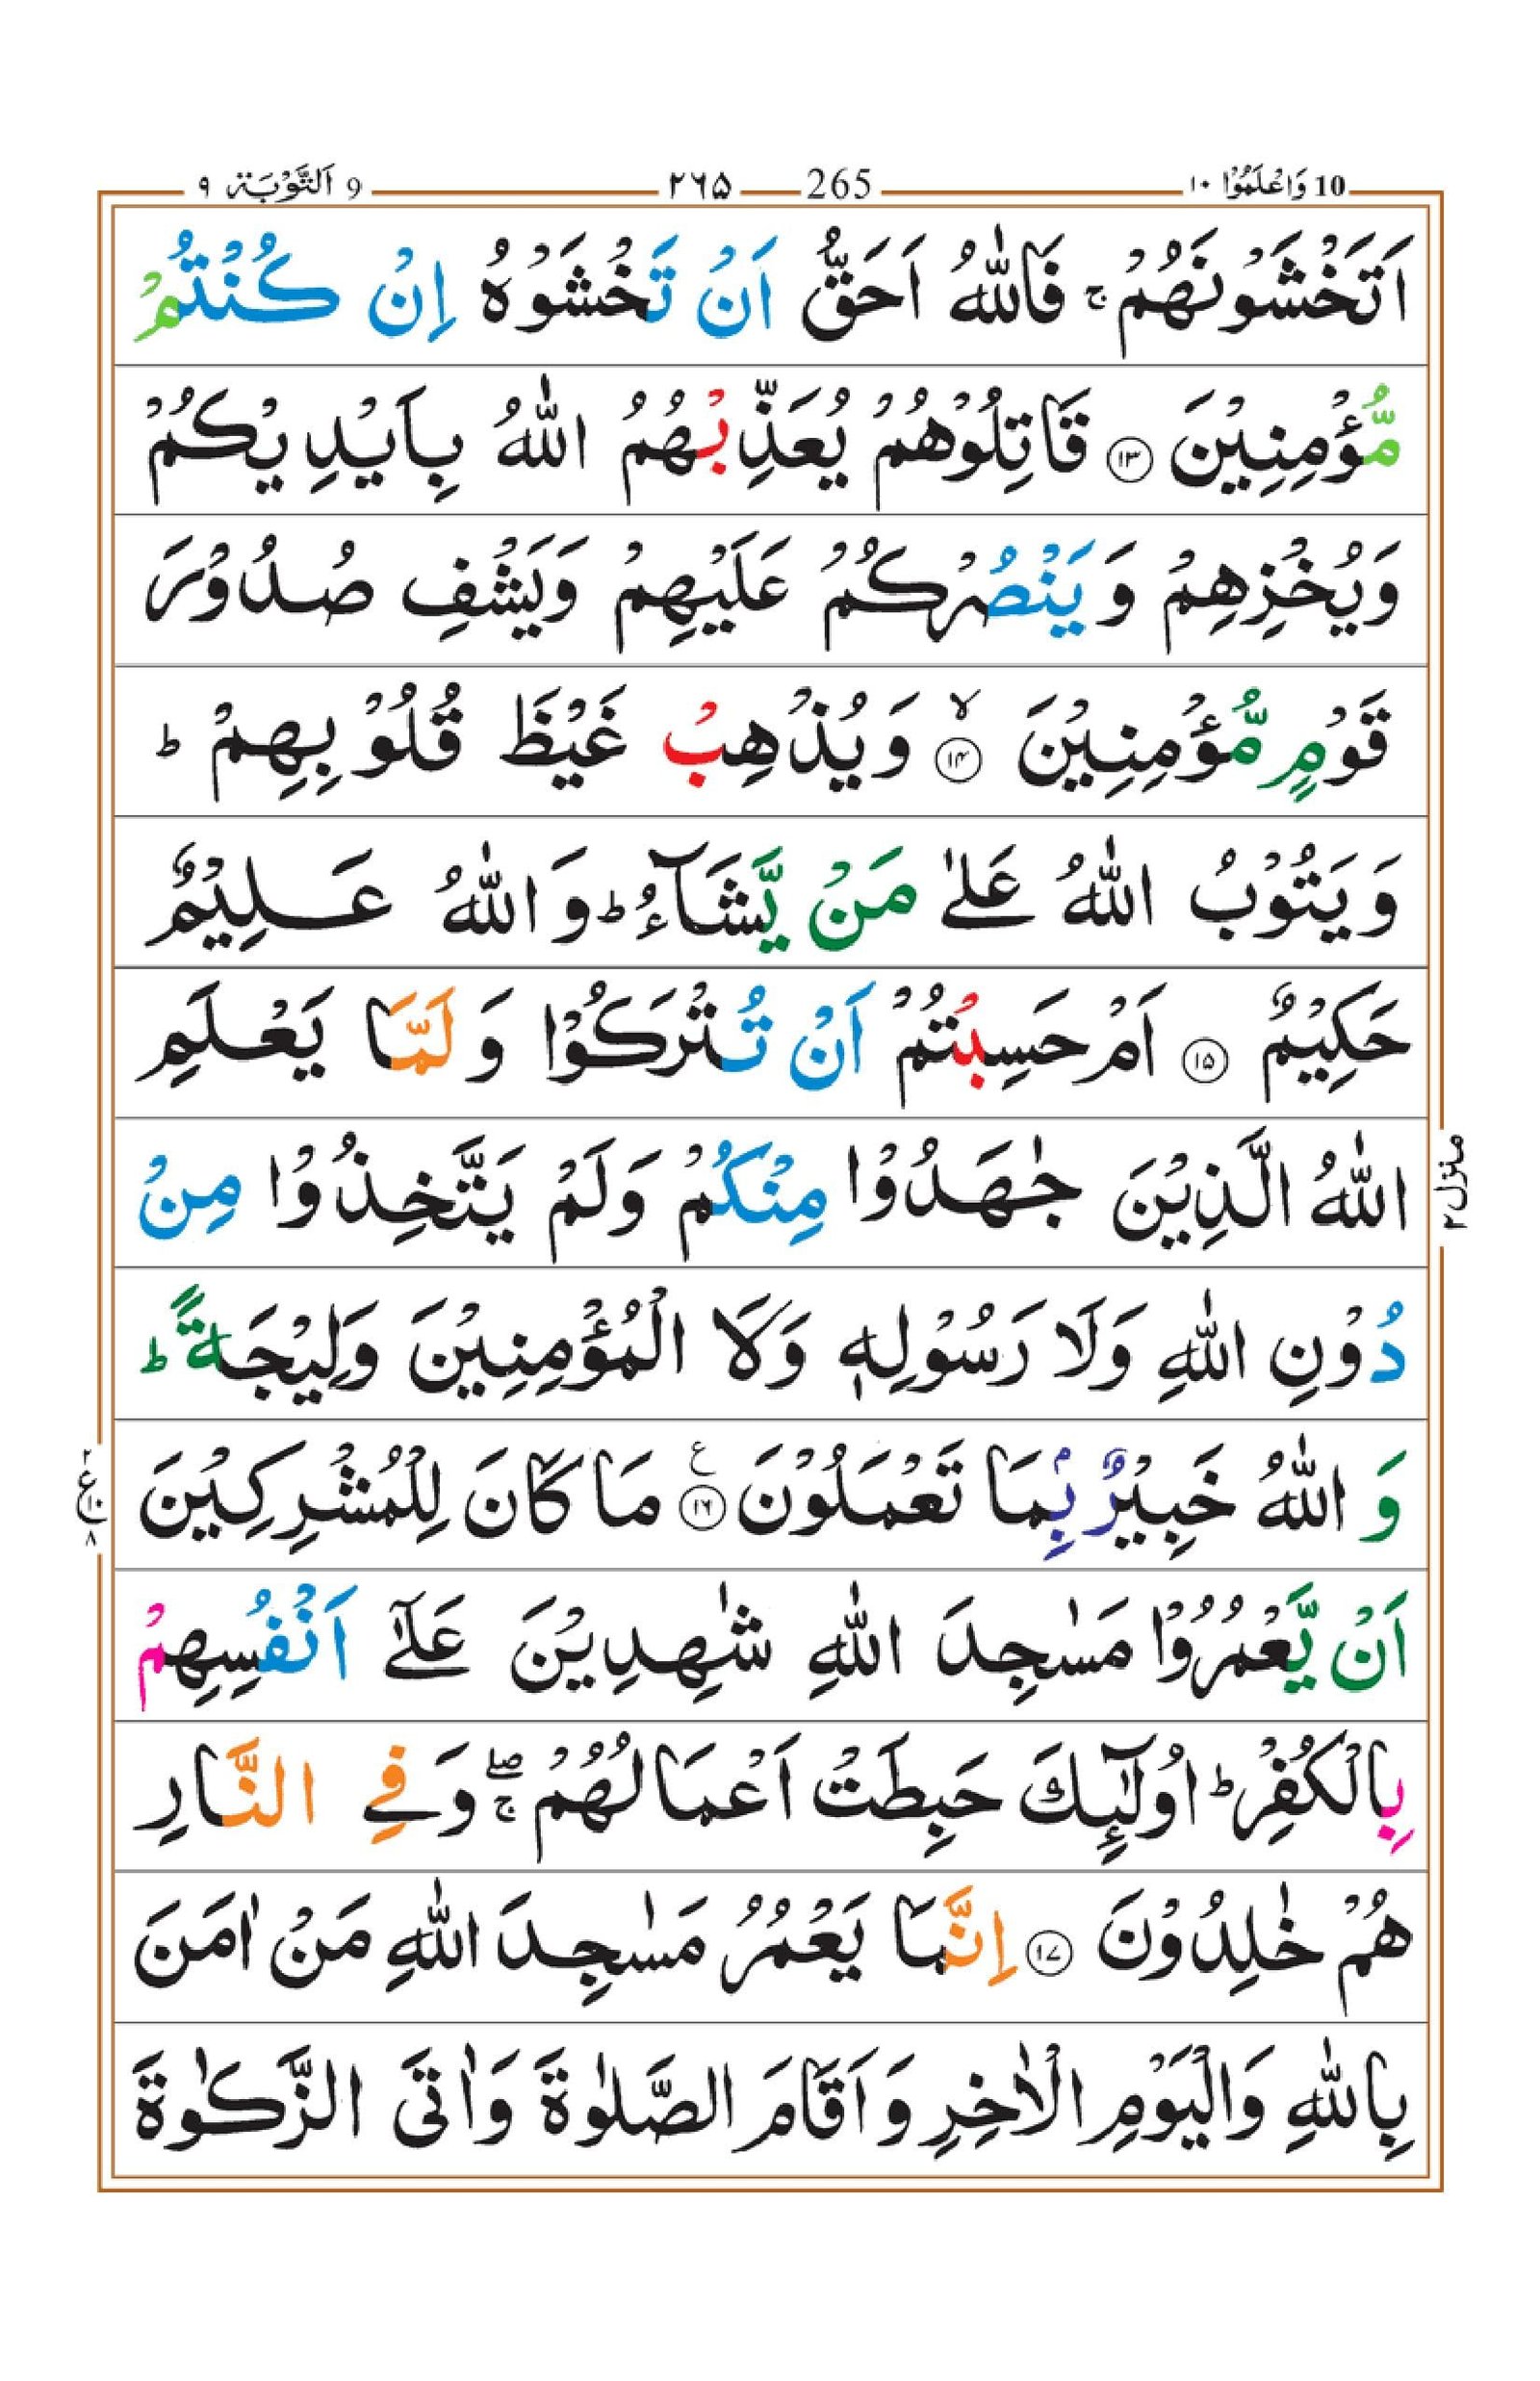 10 وَاعْلَمُوْٓا ۱۰ 265 ۲۶۵ 9 اَلتَّوْبَة ۹
اَتَخْشَوْنَهُمْ ۚ فَاللّٰهُ اَحَقُّ اَنْ تَخْشَوْهُ اِنْ كُنْتُمْ
مُّؤْمِنِيْنَ ﴿۱۳﴾ قَاتِلُوْهُمْ يُعَذِّبْهُمُ اللّٰهُ بِاَيْدِيْكُمْ
وَيُخْزِهِمْ وَيَنْصُرْكُمْ عَلَيْهِمْ وَيَشْفِ صُدُوْرَ
قَوْمٍ مُّؤْمِنِيْنَ ۙ﴿۱۴﴾ وَيُذْهِبْ غَيْظَ قُلُوْبِهِمْ ؕ
وَيَتُوْبُ اللّٰهُ عَلٰى مَنْ يَّشَآءُ ؕ وَاللّٰهُ عَلِيْمٌ
حَكِيْمٌ ﴿۱۵﴾ اَمْ حَسِبْتُمْ اَنْ تُتْرَكُوْا وَلَمَّا يَعْلَمِ
اللّٰهُ الَّذِيْنَ جٰهَدُوْا مِنْكُمْ وَلَمْ يَتَّخِذُوْا مِنْ
منزل ۲
دُوْنِ اللّٰهِ وَلَا رَسُوْلِهٖ وَلَا الْمُؤْمِنِيْنَ وَلِيْجَةً ؕ
وَاللّٰهُ خَبِيْرٌۢ بِمَا تَعْمَلُوْنَ ﴿۱۶﴾ ع مَا كَانَ لِلْمُشْرِكِيْنَ
۲ ع ۱۰ ۸
اَنْ يَّعْمُرُوْا مَسٰجِدَ اللّٰهِ شٰهِدِيْنَ عَلٰٓى اَنْفُسِهِمْ
بِالْكُفْرِ ؕ اُولٰٓئِكَ حَبِطَتْ اَعْمَالُهُمْ ۖۚ وَفِي النَّارِ
هُمْ خٰلِدُوْنَ ﴿۱۷﴾ اِنَّمَا يَعْمُرُ مَسٰجِدَ اللّٰهِ مَنْ اٰمَنَ
بِاللّٰهِ وَالْيَوْمِ الْاٰخِرِ وَاَقَامَ الصَّلٰوةَ وَاٰتَى الزَّكٰوةَ